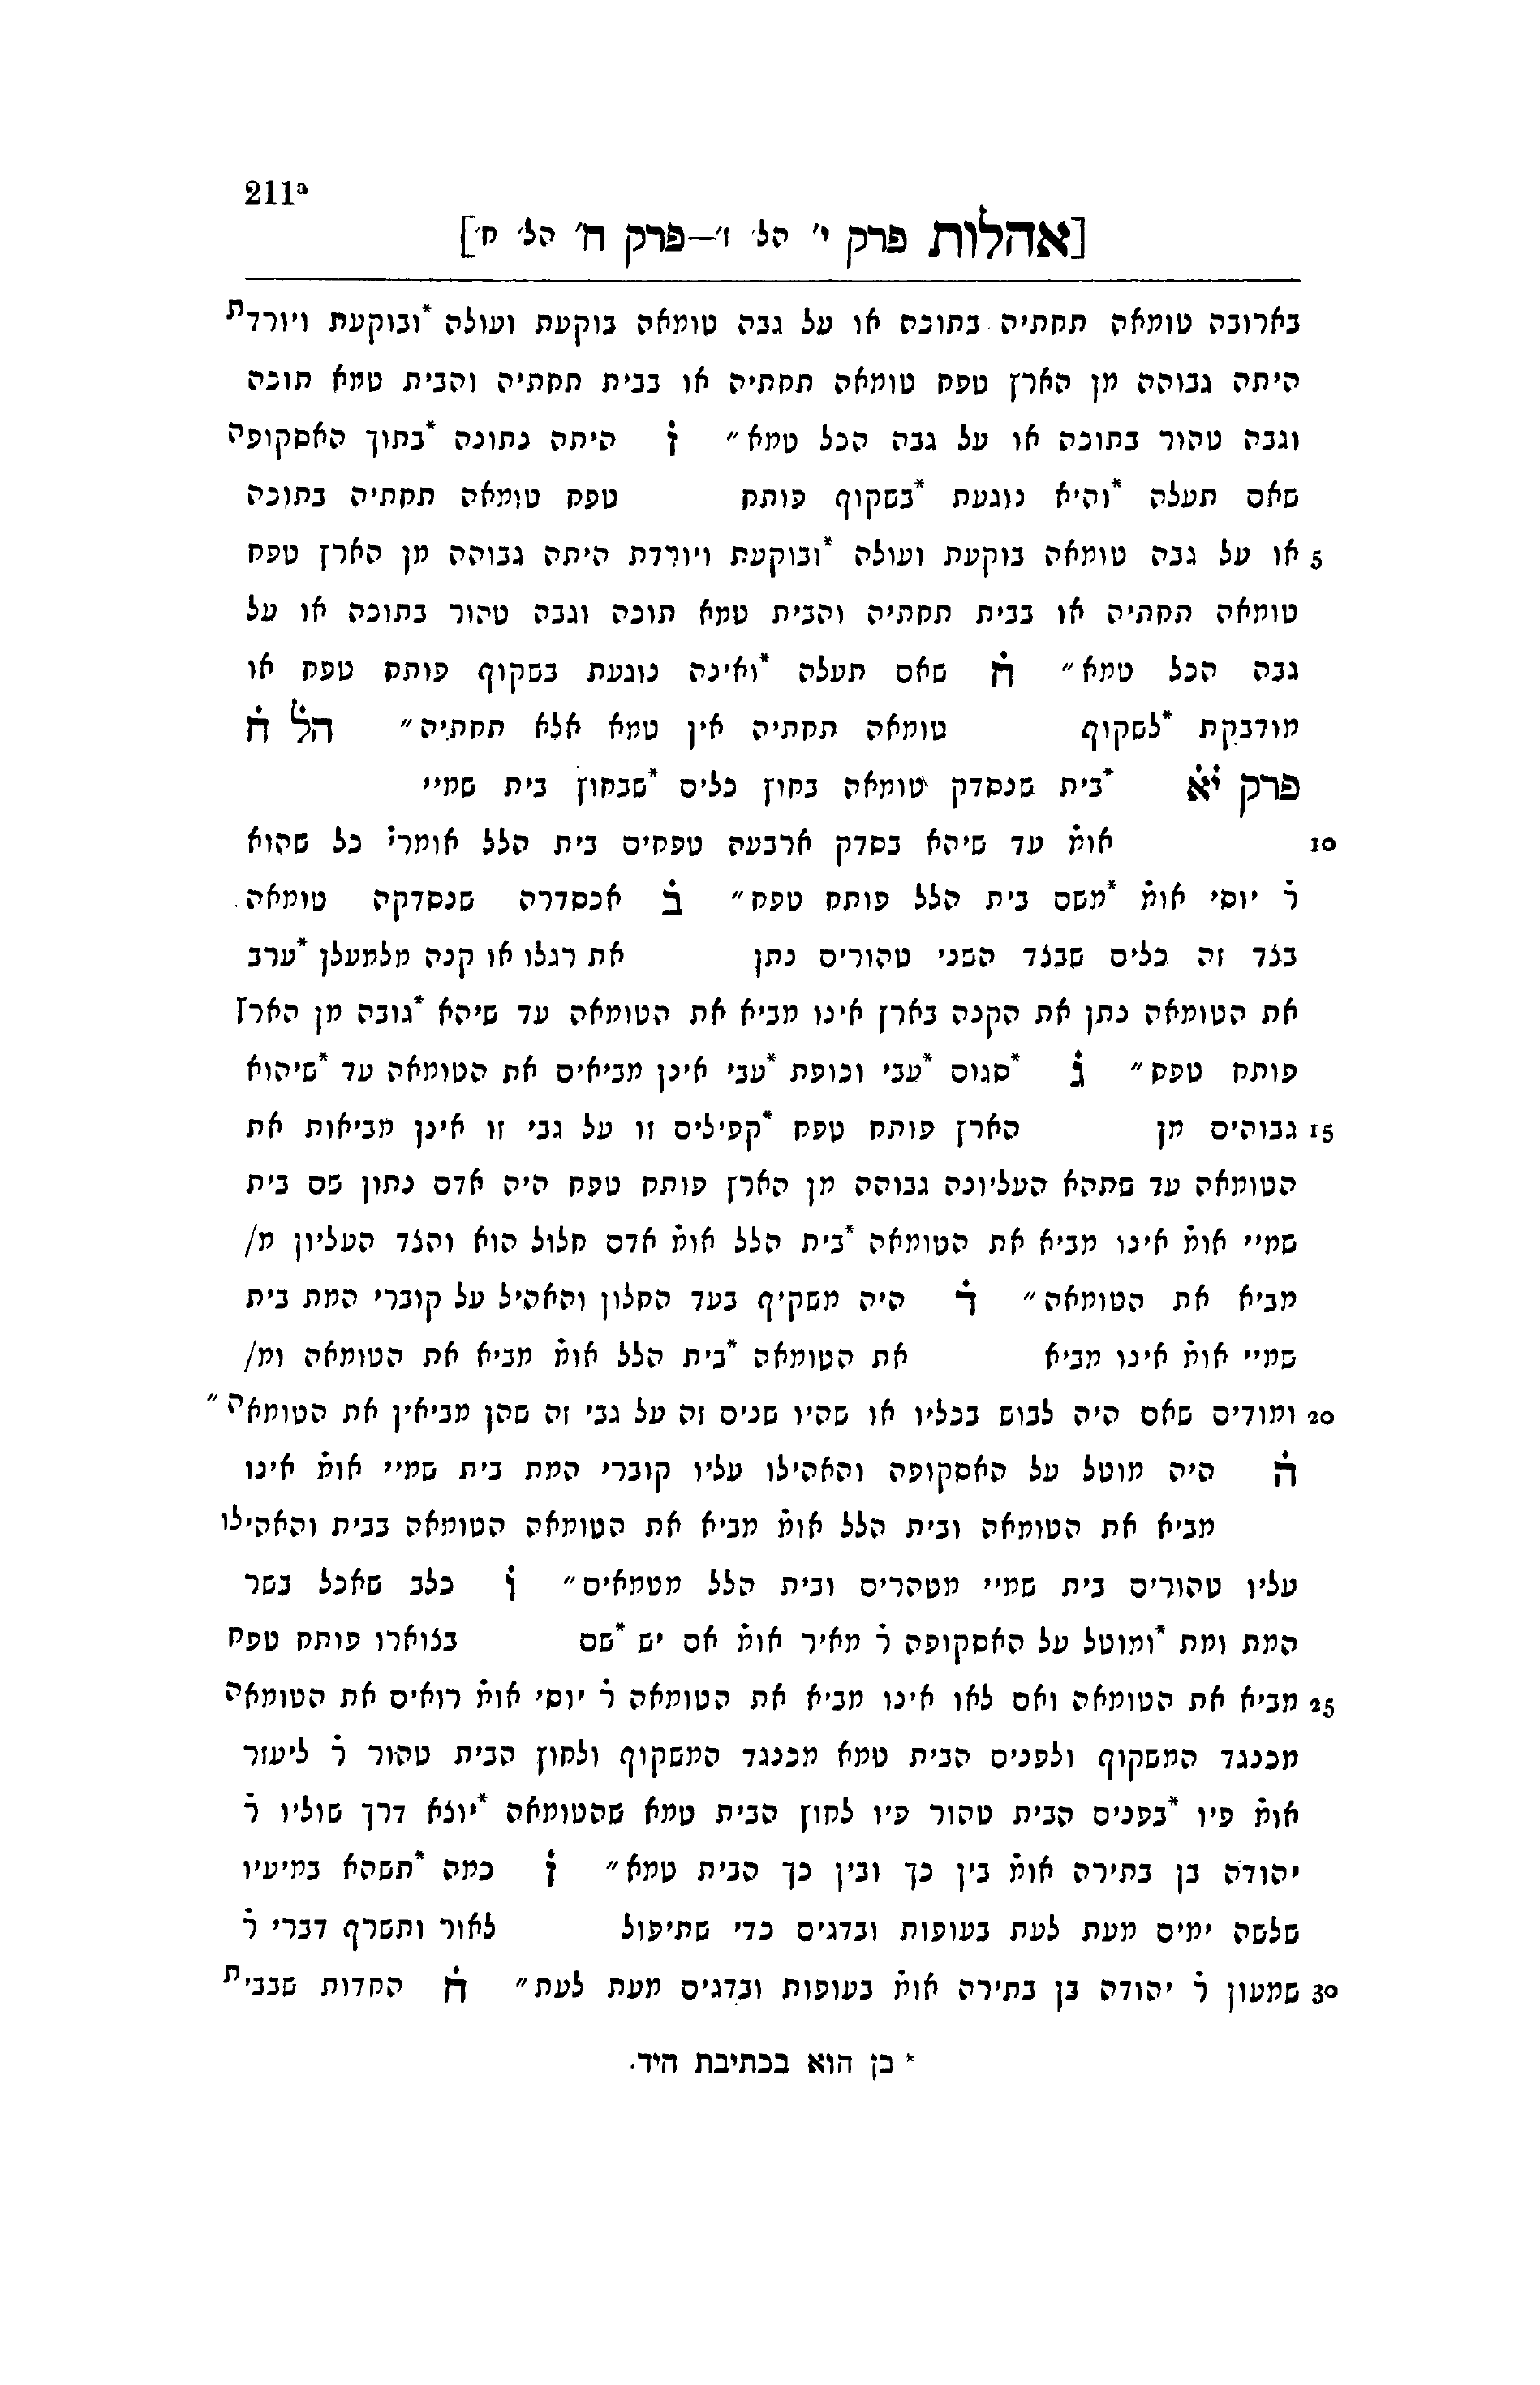 211a
[אהלות פרק י' הל' ז'—פרק ח' הל' ח']
בארובה טומאה תחתיה בתוכה או על גבה טומאה בוקעת ועולה *ובוקעת ויורדת
היתה גבוהה מן הארץ טפח טומאה תחתיה או בבית תחתיה והבית טמא תוכה
וגבה טהור בתוכה או על גבה הכל טמא״ ז̇ היתה נתונה *בתוך האסקופה
שאם תעלה *והיא נוגעת *בשקוף פותח טפח טומאה תחתיה בתוכה
5 או על גבה טומאה בוקעת ועולה *ובוקעת ויורדת היתה גבוהה מן הארץ טפח
טומאה תחתיה או בבית תחתיה והבית טמא תוכה וגבה טהור בתוכה או על
גבה הכל טמא״ ח̇ שאם תעלה *ואינה נוגעת בשקוף פותח טפח או
מודבקת *לשקוף טומאה תחתיה אין טמא אלא תחתיה״ הל̇ ח̇
פרק י̇א̇ *בית שנסדק טומאה בחוץ כלים *שבחוץ בית שמיי
10 אומ̇ עד שיהא בסדק ארבעה טפחים בית הלל אומרי̇ כל שהוא
ר̇ יוסי אומ̇ *משם בית הלל פותח טפח״ ב̇ אכסדרה שנסדקה טומאה
בצד זה כלים שבצד השני טהורים נתן את רגלו או קנה מלמעלן *ערב
את הטומאה נתן את הקנה בארץ אינו מביא את הטומאה עד שיהא *גובה מן הארץ
פותח טפח״ ג̇ *סגוס *עבי וכופת *עבי אינן מביאים את הטומאה עד *שיהוא
15 גבוהים מן הארץ פותח טפח *קפילים זו על גבי זו אינן מביאות את
הטומאה עד שתהא העליונה גבוהה מן הארץ פותח טפח היה אדם נתון שם בית
שמיי אומ̇ אינו מביא את הטומאה *בית הלל אומ̇ אדם חלול הוא והצד העליון מ/
מביא את הטומאה״ ד̇ היה משקיף בעד החלון והאהיל על קוברי המת בית
שמיי אומ̇ אינו מביא את הטומאה *בית הלל אומ̇ מביא את הטומאה ומ/
20 ומודים שאם היה לבוש בכליו או שהיו שנים זה על גבי זה שהן מביאין את הטומאה״
ה̇ היה מוטל על האסקופה והאהילו עליו קוברי המת בית שמיי אומ̇ אינו
מביא את הטומאה ובית הלל אומ̇ מביא את הטומאה הטומאה בבית והאהילו
עליו טהורים בית שמיי מטהרים ובית הלל מטמאים״ ו̇ כלב שאכל בשר
המת ומת *ומוטל על האסקופה ר̇ מאיר אומ̇ אם יש *שם בצוארו פותח טפח
25 מביא את הטומאה ואם לאו אינו מביא את הטומאה ר̇ יוסי אומ̇ רואים את הטומאה
מכנגד המשקוף ולפנים הבית טמא מכנגד המשקוף ולחוץ הבית טהור ר̇ ליעזר
אומ̇ פיו *בפנים הבית טהור פיו לחוץ הבית טמא שהטומאה *יוצא דרך שוליו ר̇
יהודה בן בתירה אומ̇ בין כך ובין כך הבית טמא״ ז̇ כמה *תשהא במיעיו
שלשה ימים מעת לעת בעופות ובדגים כדי שתיפול לאור ותשרף דברי ר̇
30 שמעון ר̇ יהודה בן בתירה אומ̇ בעופות ובדגים מעת לעת״ ח̇ החדות שבבית
* כן הוא בכתיבת היד.